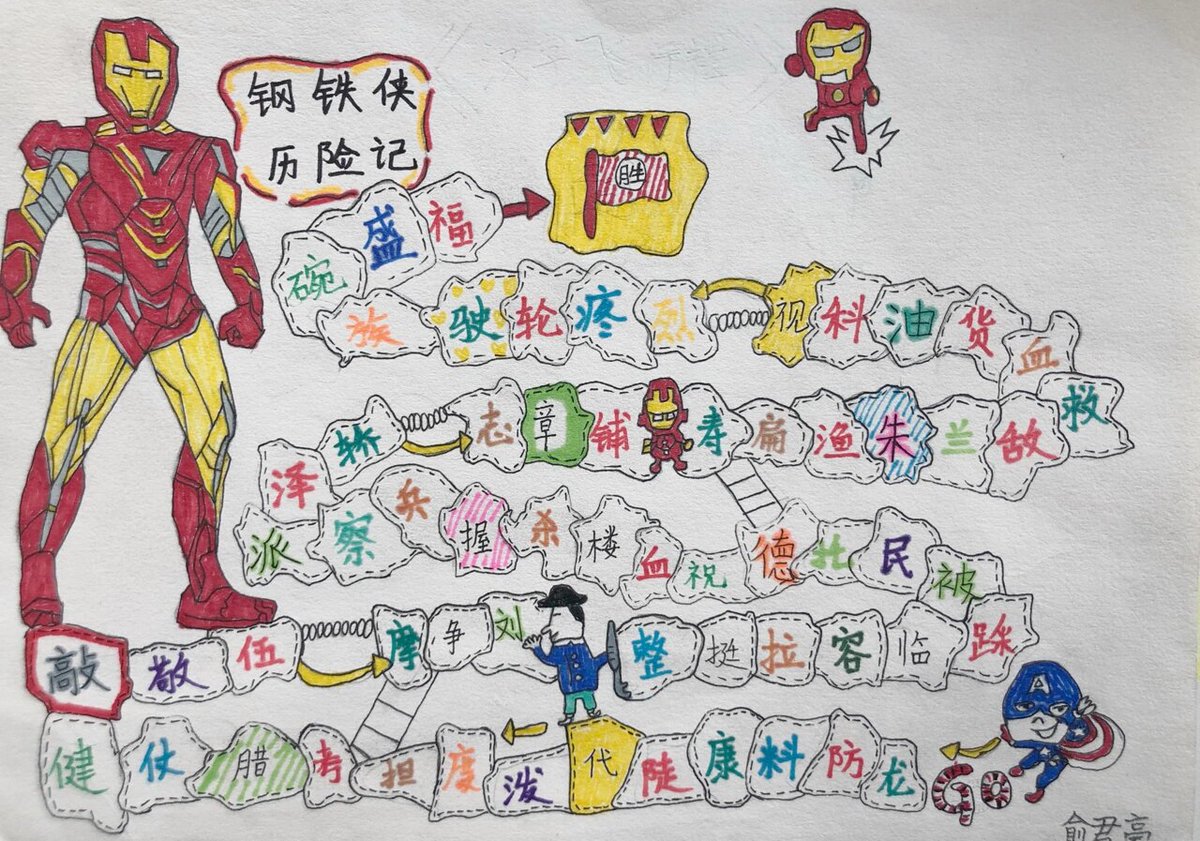 钢铁侠
历险记
胜
碗盛福
族驶轮疼烈视科油货血
轿志章铺寿扁渔朱兰敌救
泽
派察兵握杀楼血祝德壮民被
敲敬伍摩争刘整挺拉容临踩
健仗腊考担度泼代陡康料防龙
Go
俞君亮